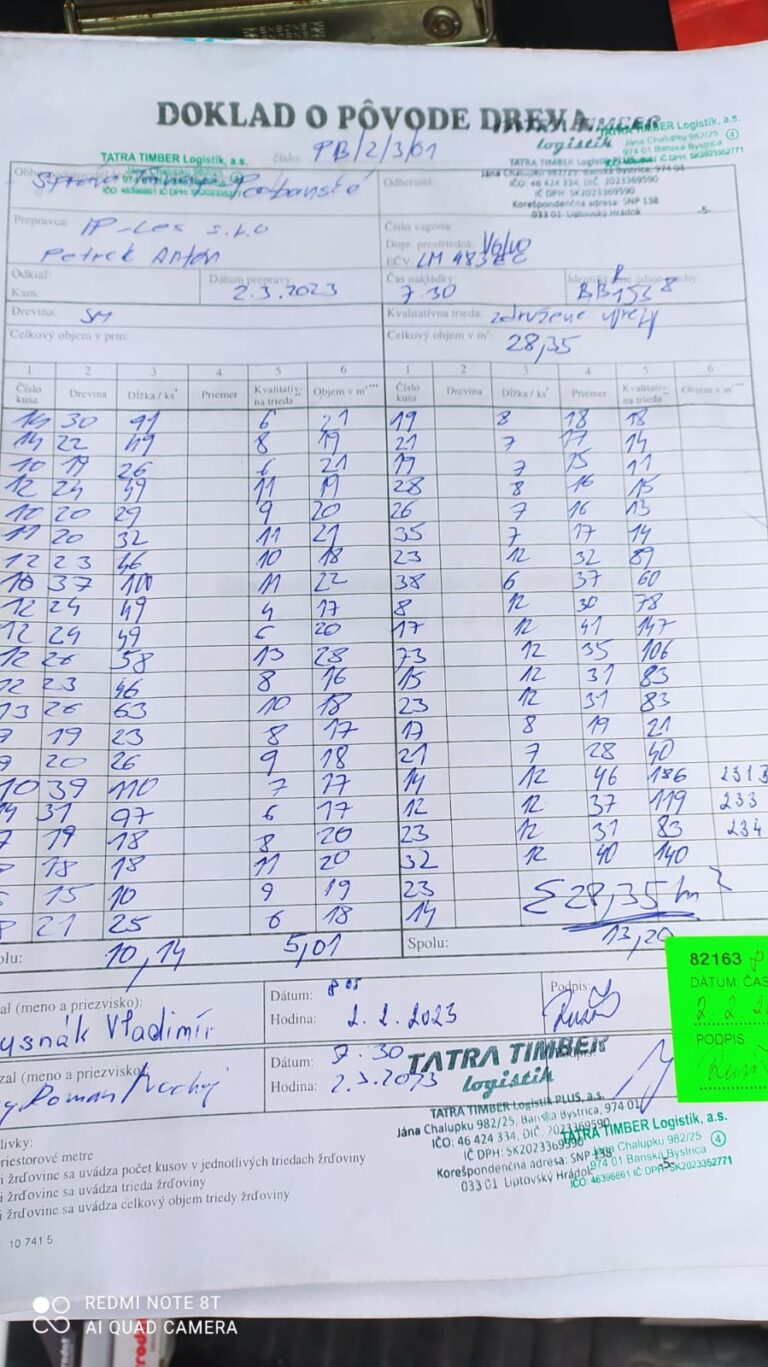 DOKLAD O PÔVODE DREVA
TATRA TIMBER
logistik
TATRA TIMBER Logistik, a.s.
Jána Chalupku 982/25
974 01 Banská Bystrica
IČO: 46396861 IČ DPH: SK2023352771
TATRA TIMBER Logistik, a.s.
číslo: PB/2/3/01
TATRA TIMBER Logistik PLUS, a.s.
Jána Chalupku 982/25, Banská Bystrica, 974 01
IČO: 46 424 334, DIČ: 2023369590
IČ DPH: SK2023369590
Korešpondenčná adresa: SNP 138
033 01 Liptovský Hrádok -5-
Odberateľ:
Prepravca: IP-Les s.r.o
Petrek Anton
Číslo vagóna:
Dopr. prostriedok: Volvo
EČV: LM
Odkiaľ:
Kam:
Dátum prepravy: 2.3.2023
Čas nakládky: 7.30
Drevina: SM
Kvalitatívna trieda: združene výrezy
Celkový objem v prm:
Celkový objem v m³: 28,35
1 2 3 4 5 6 1 2 3 4 5 6
Číslo kusa Drevina Dĺžka / ks* Priemer Kvalitatív- na trieda Objem v m³*** Číslo kusa Drevina Dĺžka / ks* Priemer Kvalitatív- na trieda Objem v m³***
30 91 6 21 19 8 18 18
14 22 49 8 19 21 7 17 14
10 19 26 6 21 19 7 15 11
12 24 49 11 19 28 8 16 15
10 20 29 9 20 26 7 16 13
11 20 32 11 21 35 7 17 14
12 23 46 10 18 23 12 32 89
10 37 100 11 22 38 6 37 60
12 24 49 4 17 8 12 30 78
12 24 49 6 20 17 12 41 147
12 26 58 13 28 73 12 35 106
12 23 46 8 16 15 12 31 83
13 26 63 10 18 23 12 31 83
19 23 8 17 17 8 19 21
9 20 26 9 18 21 7 28 40
10 39 110 7 17 14 12 46 186
14 31 97 6 17 12 12 37 119 233
7 19 18 8 20 23 12 31 83 234
18 18 11 20 32 12 40 140
15 10 9 19 23 Σ 28,35 m³
21 25 6 18 14
10,14 5,01
Spolu: 13,20
(meno a priezvisko):
Vladimír
Dátum: 8 05
Hodina: 2.2.2023
Podpis:
(meno a priezvisko)
Roman
Dátum: 7.30
Hodina: 2.3.2023
82163
DÁTUM, ČAS
PODPIS:
TATRA TIMBER
logistik
TATRA TIMBER Logistik PLUS, a.s.
Jána Chalupku 982/25, Banská Bystrica, 974 01
IČO: 46 424 334, DIČ: 2023369590
IČ DPH: SK2023369590
Korešpondenčná adresa: SNP 138
033 01 Liptovský Hrádok -5-
TATRA TIMBER Logistik, a.s.
Jána Chalupku 982/25
974 01 Banská Bystrica
IČO: 46396861 IČ DPH: SK2023352771
metre
žrďovine sa uvádza počet kusov v jednotlivých triedach žrďoviny
žrďovine sa uvádza trieda žrďoviny
žrďovine sa uvádza celkový objem triedy žrďoviny
10 741 5
REDMI NOTE 8T
AI QUAD CAMERA